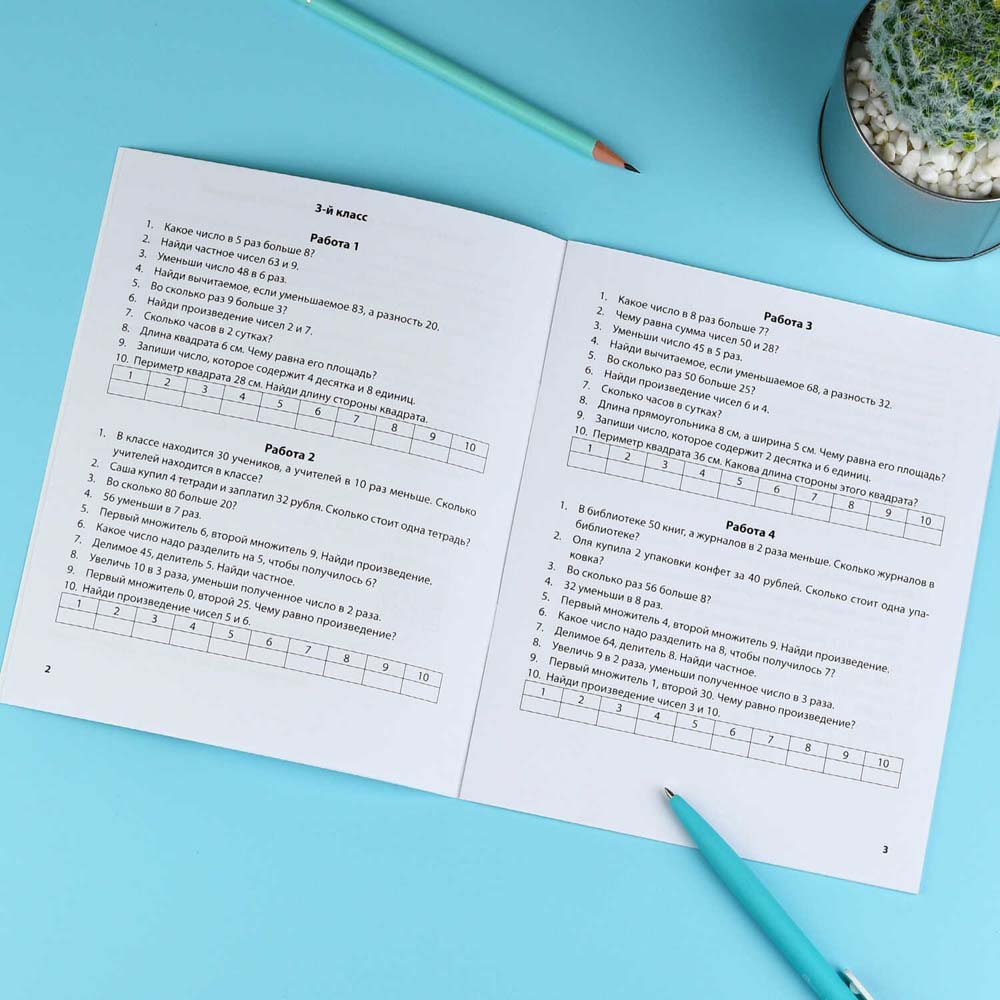 3-й класс
Работа 1
1. Какое число в 5 раз больше 8?
2. Найди частное чисел 63 и 9.
3. Уменьши число 48 в 6 раз.
4. Найди вычитаемое, если уменьшаемое 83, а разность 20.
5. Во сколько раз 9 больше 3?
6. Найди произведение чисел 2 и 7.
7. Сколько часов в 2 сутках?
8. Длина квадрата 6 см. Чему равна его площадь?
9. Запиши число, которое содержит 4 десятка и 8 единиц.
10. Периметр квадрата 28 см. Найди длину стороны квадрата.
1 2 3 4 5 6 7 8 9 10
Работа 2
1. В классе находится 30 учеников, а учителей в 10 раз меньше. Сколько
учителей находится в классе?
2. Саша купил 4 тетради и заплатил 32 рубля. Сколько стоит одна тетрадь?
3. Во сколько 80 больше 20?
4. 56 уменьши в 7 раз.
5. Первый множитель 6, второй множитель 9. Найди произведение.
6. Какое число надо разделить на 5, чтобы получилось 6?
7. Делимое 45, делитель 5. Найди частное.
8. Увеличь 10 в 3 раза, уменьши полученное число в 2 раза.
9. Первый множитель 0, второй 25. Чему равно произведение?
10. Найди произведение чисел 5 и 6.
1 2 3 4 5 6 7 8 9 10
2
Работа 3
1. Какое число в 8 раз больше 7?
2. Чему равна сумма чисел 50 и 28?
3. Уменьши число 45 в 5 раз.
4. Найди вычитаемое, если уменьшаемое 68, а разность 32.
5. Во сколько раз 50 больше 25?
6. Найди произведение чисел 6 и 4.
7. Сколько часов в сутках?
8. Длина прямоугольника 8 см, а ширина 5 см. Чему равна его площадь?
9. Запиши число, которое содержит 2 десятка и 6 единиц.
10. Периметр квадрата 36 см. Какова длина стороны этого квадрата?
1 2 3 4 5 6 7 8 9 10
Работа 4
1. В библиотеке 50 книг, а журналов в 2 раза меньше. Сколько журналов в
библиотеке?
2. Оля купила 2 упаковки конфет за 40 рублей. Сколько стоит одна упа-
ковка?
3. Во сколько раз 56 больше 8?
4. 32 уменьши в 8 раз.
5. Первый множитель 4, второй множитель 9. Найди произведение.
6. Какое число надо разделить на 8, чтобы получилось 7?
7. Делимое 64, делитель 8. Найди частное.
8. Увеличь 9 в 2 раза, уменьши полученное число в 3 раза.
9. Первый множитель 1, второй 30. Чему равно произведение?
10. Найди произведение чисел 3 и 10.
1 2 3 4 5 6 7 8 9 10
3